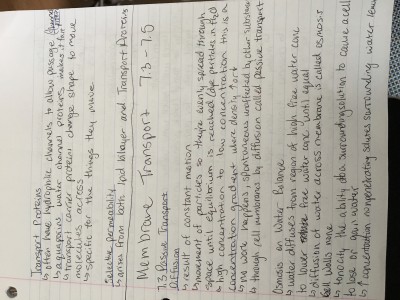 Transport Proteins
↳ often have hydrophilic channels to allow passage
↳ aquaporins: water channel proteins makes it fast
↳ transport carrier proteins change shape to move
molecules across
↳ specific for the things they move
Selective permeability
↳ arise from both lipid bilayer and Transport Proteins
Membrane Transport 7.3 - 7.5
7.3 Passive Transport
Diffusion
↳ result of constant motion
↳ movement of particles so they're evenly spread through
space until equilibrium is reached (dye particles in H2O
↳ high concentration to low concentration this is a
concentration gradient where density ↑ or ↓
↳ no work happens, spontaneous unaffected by other substan
↳ through cell membranes by diffusion called passive transport
Osmosis on Water Balance
↳ water diffuses from region of high free water conc
to lower free water conc until equal
↳ diffusion of water across membrane is called osmosis
Cell Walls none
↳ tonicity the ability of a surrounding solution to cause a cell
to lose or gain water
↳ ↑ concentration nonpenetrating solutes surrounding water leav